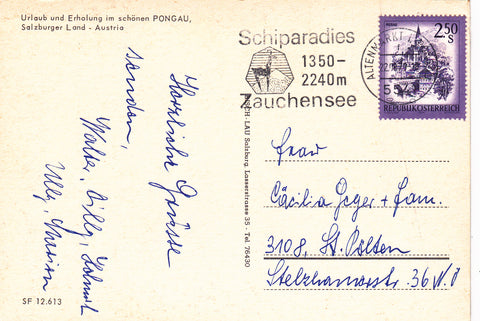 Urlaub und Erholung im schönen PONGAU,
Salzburger Land - Austria
Herzliche Grüsse
senden,
Walter, Willy,
Schiparadies
1350-
2240m
Zauchensee
ALTENMARKT
2.50
S
REPUBLIK ÖSTERREICH
LAU Salzburg Lasserstrasse 35 - Tel. 76430
Frau
Cäcilia Geger + Fam.
3108, St. Pölten
Stelzhamerstr. 36 N.Ö
SF 12.613